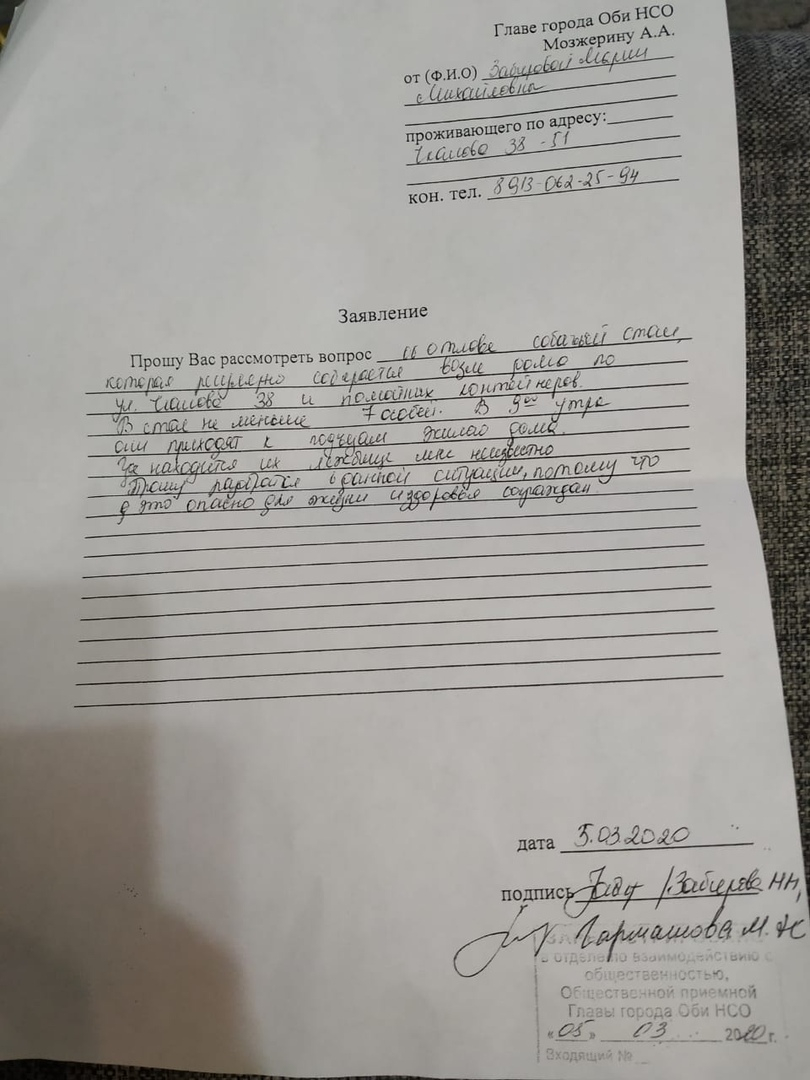 Главе города Оби НСО
Мозжерину А.А.
от (Ф.И.О) Забировой Марии
Михайловна
проживающего по адресу:
Чкалова 38 - 51
кон. тел. 8913-062-25-94
Заявление
Прошу Вас рассмотреть вопрос об отлове собачьей стаи,
которая регулярно собирается возле дома по
ул. Чкалова 38 и помойных контейнеров.
В стае не меньше 7 особей. В 9⁰⁰ утра
они приходят к подъездам жилого дома.
Где находится их лежбище мне неизвестно
Прошу разобраться в данной ситуации, потому что
это опасно для жизни и здоровья сограждан.
дата 5.03.2020
подпись /Забирова
Гармашова М.
в отделе по взаимодействию с
общественностью,
Общественной приемной
Главы города Оби НСО
«05» 03 2020 г.
Входящий №